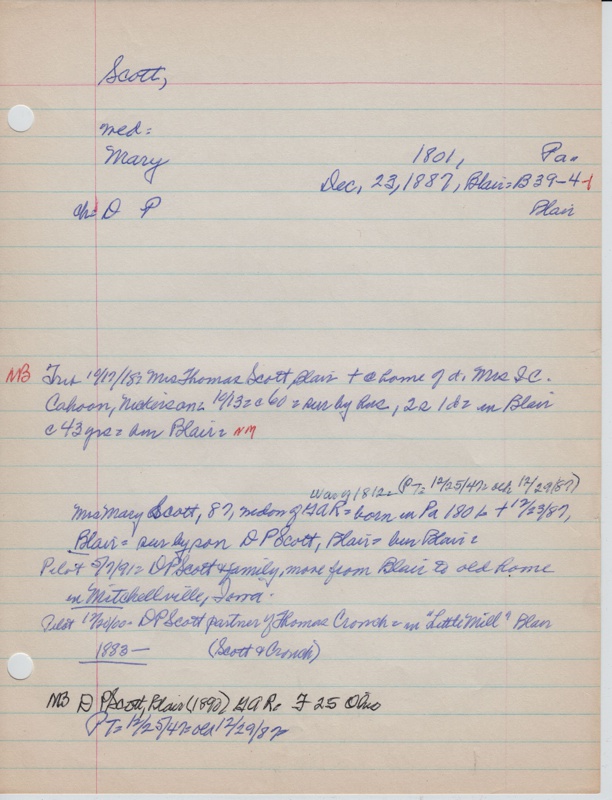 Scott,
wed:
Mary 1801, Pa.
Dec, 23, 1887, Blair= B39-4-1
ch= D P Blair
NB Trib Mrs Thomas Scott, Blair + @ home of d. Mrs I C.
Cahoon, Nickerson= 10/13= c 60 = sur by hus, 2s 1d= in Blair
c 43 yrs= bur Blair= NM
War of 1812= (PT= 12/25/47= och 12/29/87)
Mrs Mary Scott, 87, widow of GAR= born in Pa 1801 + 12/23/87,
Blair= sur by son D P Scott, Blair= bur Blair=
Pilot 5/7/91= D P Scott & family, move from Blair to old home
in Mitchellville, Iowa.
Pilot D P Scott partner of Thomas Crouch= in "Little Mill" Blair
1883— (Scott & Crouch)
NB D P Scott, Blair (1890) GAR= F 25 Ohio
PT= 12/25/47= och 12/29/87